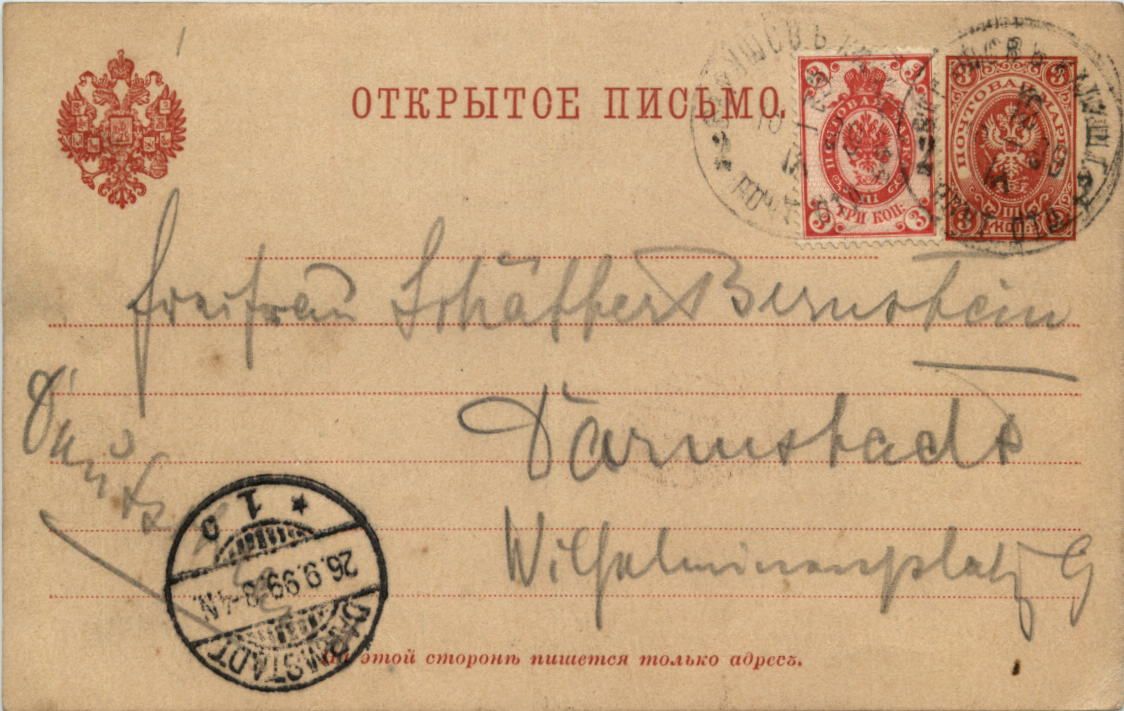 ОТКРЫТОЕ ПИСЬМО.
ПОЧТОВАЯ МАРКА
ТРИ КОП.
3 3
ПОЧТОВАЯ МАРКА
Freifrau Schäffer Bernstein
Darmstadt
Wilhelminenplatz
DARMSTADT
26.9.99. 3-4N.
* 1
На этой сторонѣ пишется только адресъ.